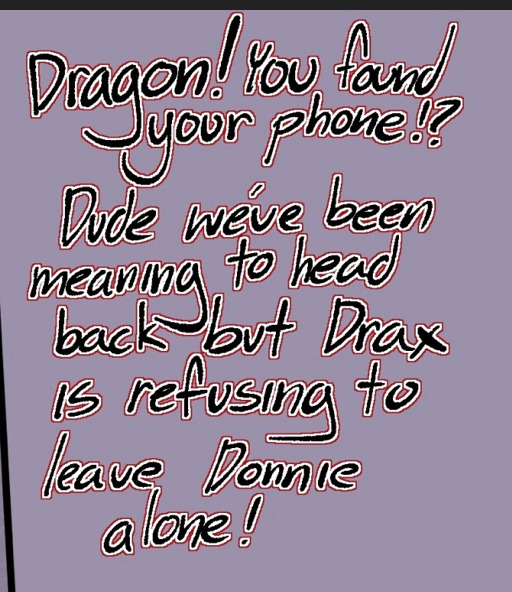 Dragon! You found
your phone!?
Dude we've been
meaning to head
back but Drax
is refusing to
leave Donnie
alone!